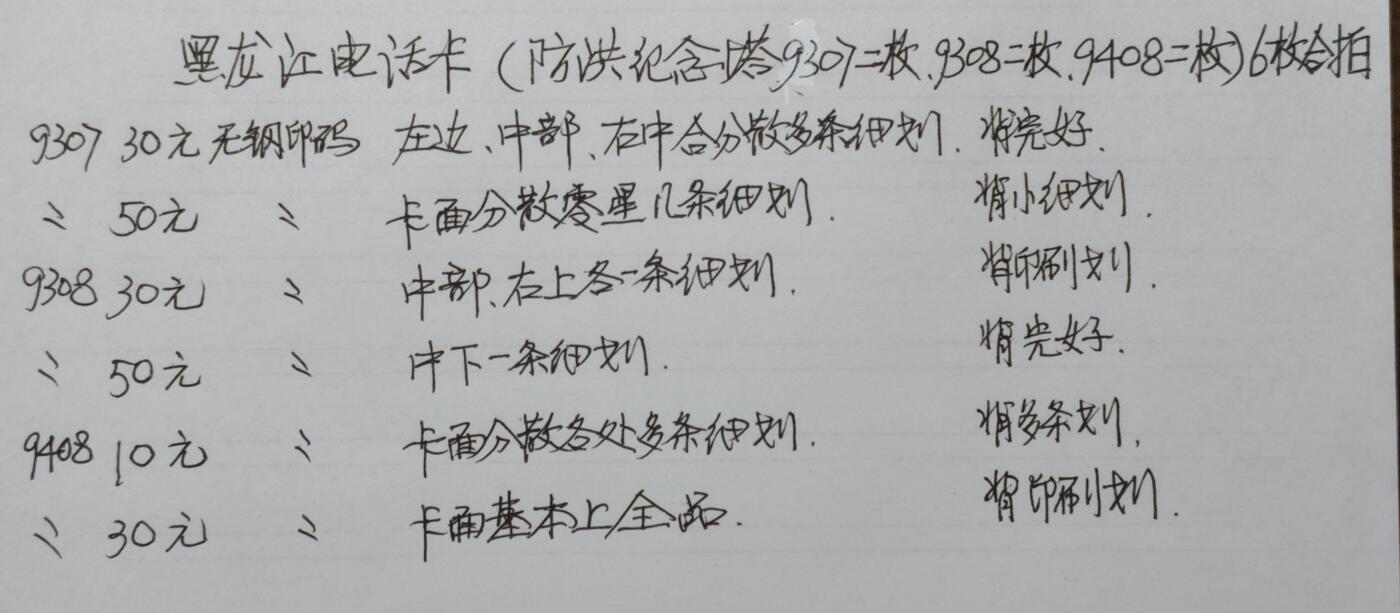 黑龙江电话卡（防洪纪念塔9307二枚.9308二枚.9408二枚）6枚合拍
9307 30元 无钢印码 左边、中部、右中合分散多条细划. 背完好.
〃 50元 〃 卡面分散零星几条细划. 背小细划.
9308 30元 〃 中部、右上各一条细划. 背印刷划.
〃 50元 〃 中下一条细划. 背完好.
9408 10元 〃 卡面分散各处多条细划. 背多条划.
〃 30元 〃 卡面基本上全品. 背印刷划.